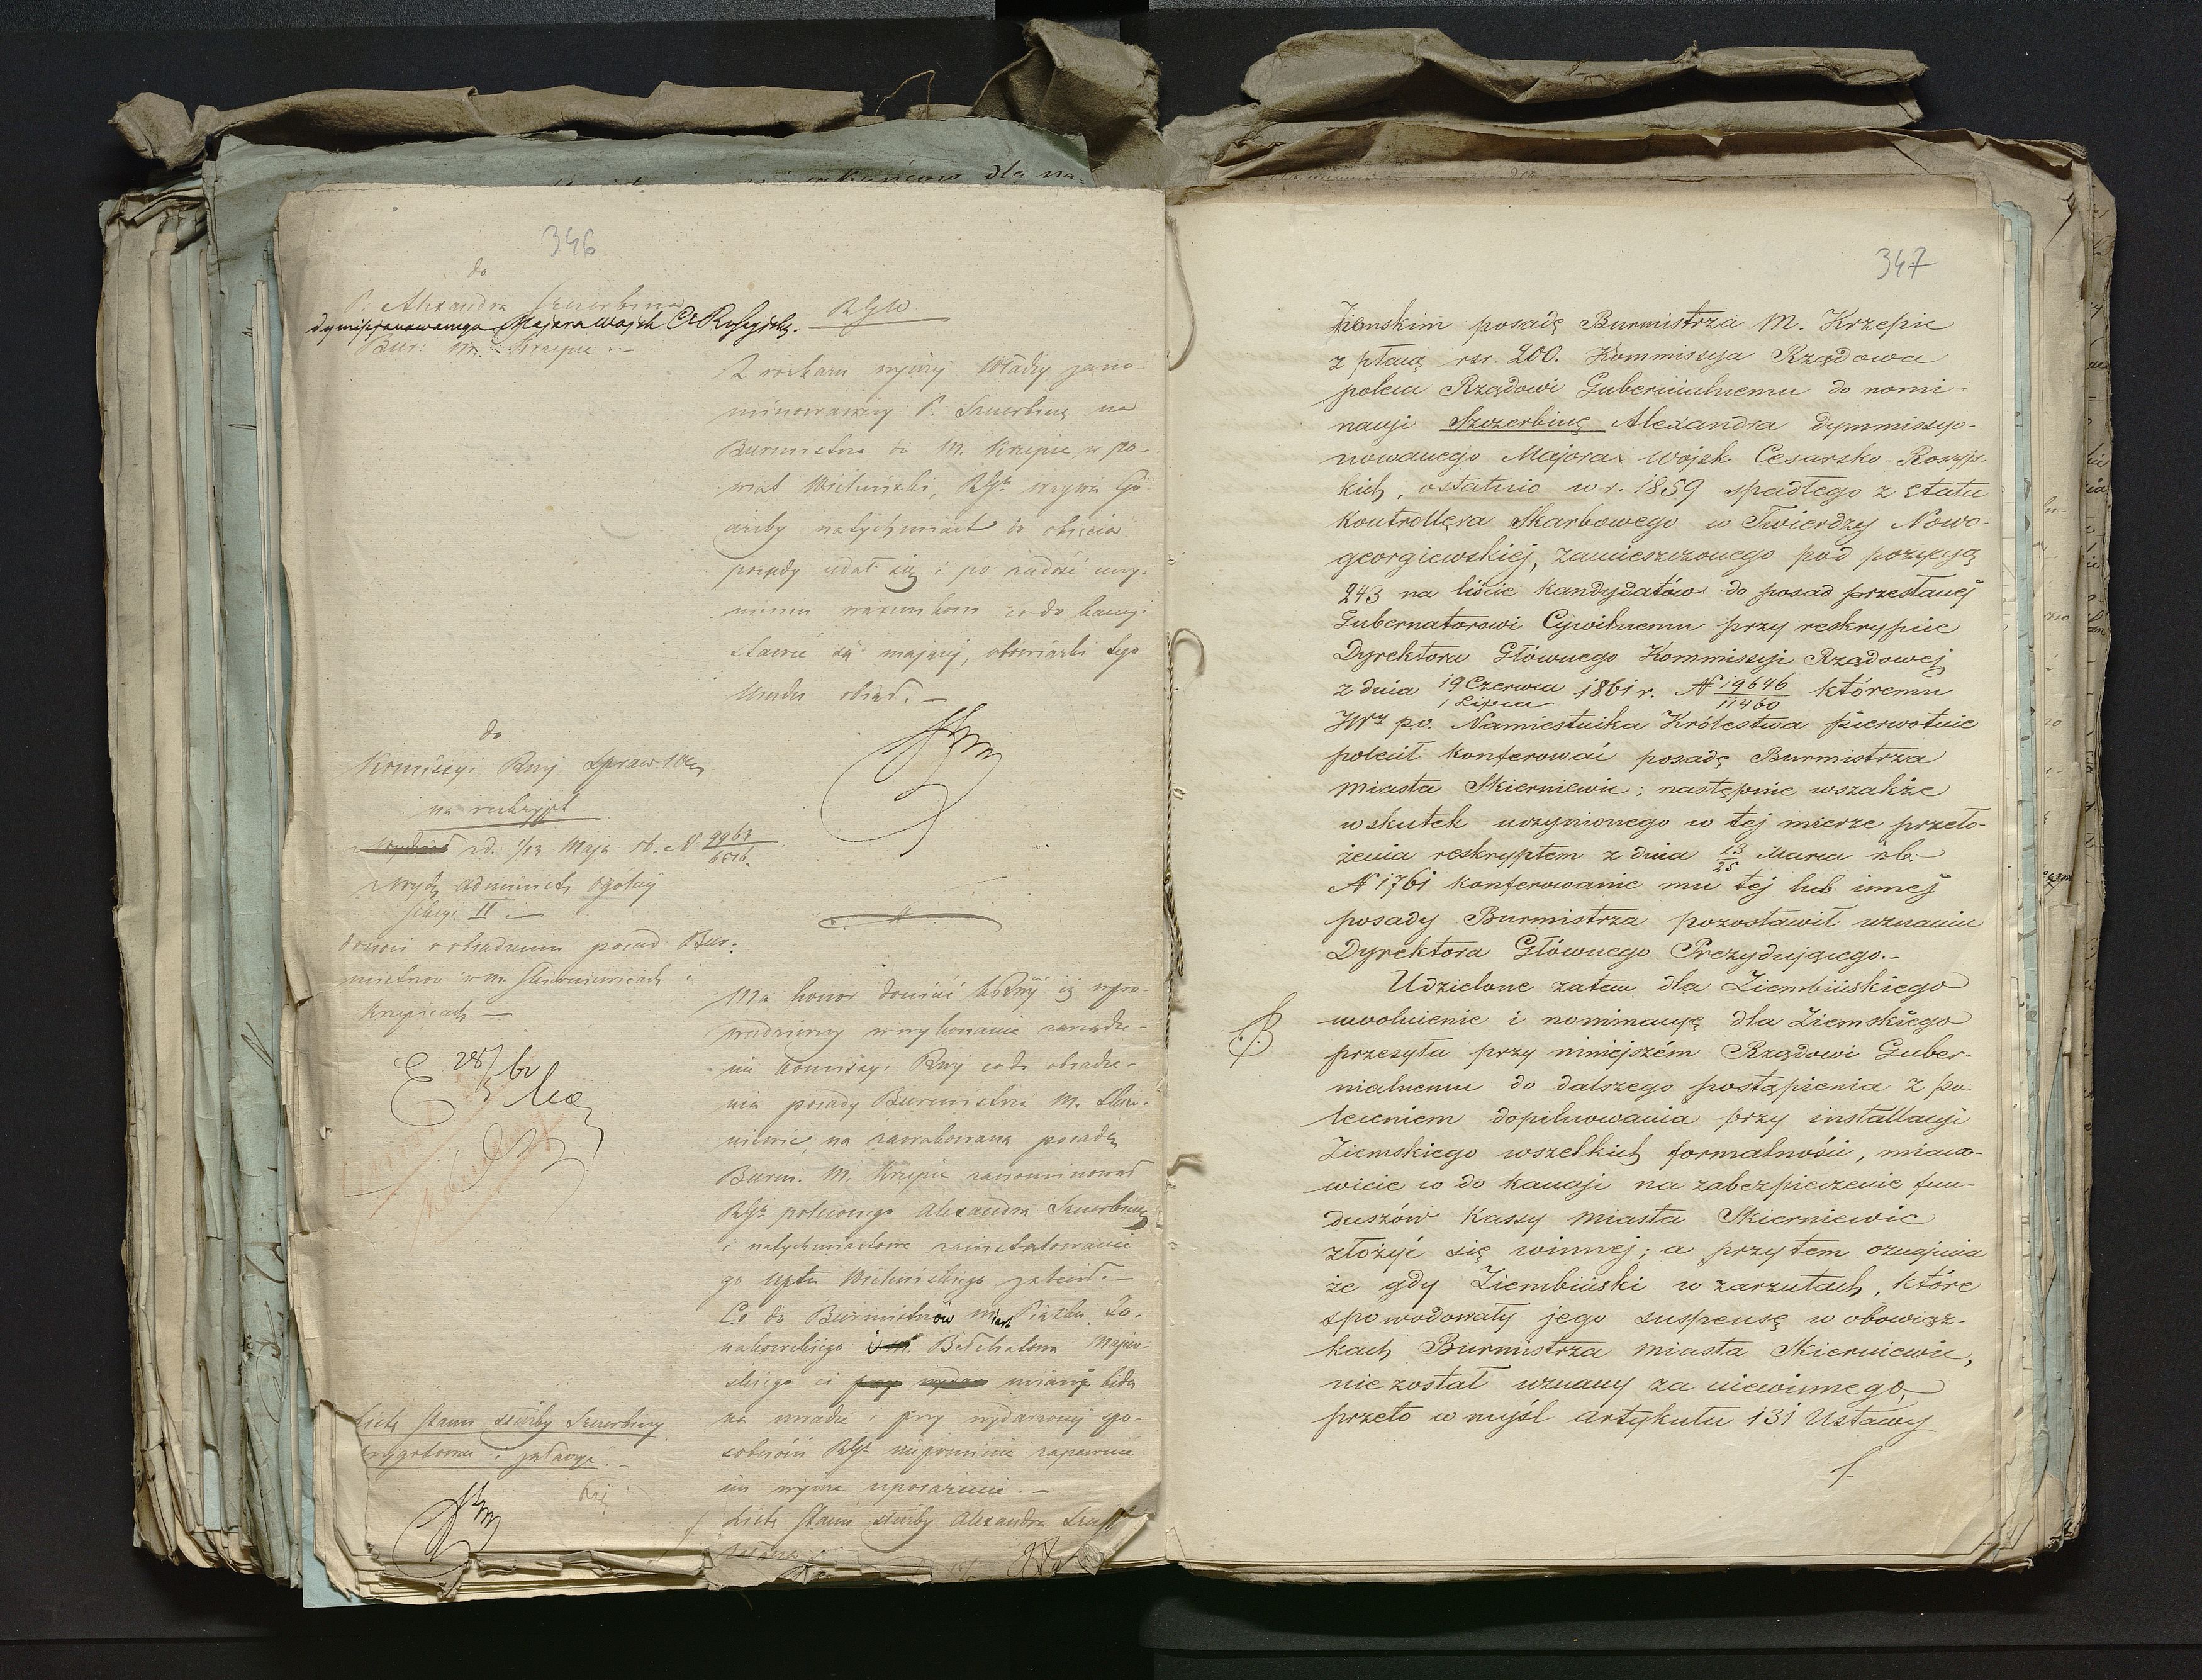 346
do
P. Alexandra Szczerbina
dymisjonowanego Majora Wojsk Ce Rossyjsk.
Bur: M. Krzepic
RGW
Z rozkazu wyższej Władzy zano-
minowawszy P. Szczerbinę na
Burmistrza do M. Krzepic w po-
wiat Wieluński, RGu wzywa Go
ażeby natychmiast do objęcia
posady udał się i po zadość uczy-
nieniu warunkom co do kaucyi
obowiązki tego
Urzędu objął. —
do
Kommissyi Rwej Spraw Wew
na reskrypt
z d. 1/13 Maja rb. N 9963/6516
Wydz administr ogólny
Sekcyi II
donosi o obsadzeniu posad Bur-
mistrza w m. Skierniewicach i
Krzepicach —
28/5
Ma honor donieść iż wpro-
wadzając w wykonanie rozrządze-
nie Komissyi Rwej co do obsadze-
nia posady Burmistrza M. Skier-
niewic, na zawakowaną posadę
Burm. M. Krzepic zanominował
RGu poleconego Alexandra Szczerbinę
i natychmiastowe zainstalowanie
go Nptu Wieluńskiego zalecił. —
Co do Burmistrzów Miast Piątku Ło-
nakowskiego Bełchatowa Majew-
skiego ci
na uwadze i przy wydarzonej spo-
sobności RGu nieomieszka zapewnić
im wyższe uposażenie. —
Listę stanu służby Alexandra
Listę stanu służby Szczerbiny
347
Ziemskim posadę Burmistrza M. Krzepic
z płacą rsr. 200. Kommissya Rządowa
poleca Rządowi Gubernialnemu do nomi-
nacyi Szczerbinę Alexandra dymmissyo-
nowanego Majora Wojsk Cesarsko-Rossyjs-
kich, ostatnio w r. 1859 spadłego z etatu
Kontrollera Skarbowego w Twierdzy Nowo-
georgiewskiej, zamieszczonego pod pozycyą
243 na liście kandydatów do posad przesłanej
Gubernatorowi Cywilnemu przy reskrypcie
Dyrektora Głównego Kommissyi Rządowej
z dnia 19 Czerwca/1 Lipca 1861 r. N 19646/11460 któremu
JWy p.o. Namiestnika Królestwa pierwotnie
polecił konferować posadę Burmistrza
Miasta Skierniewic; następnie wszakże
wskutek uczynionego w tej mierze przeło-
żenia reskryptem z dnia 13/25 Marca r.b.
N 1761 konferowanie mu tej lub innej
posady Burmistrza pozostawił uznaniu
Dyrektora Głównego Prezydującego. —
Udzielone zatem dla Ziembińskiego
uwolnienie i nominacyę dla Ziemskiego
przesyła przy niniejszém Rządowi Guber-
nialnemu do dalszego postąpienia z po-
leceniem dopilnowania przy installacyi
Ziemskiego wszelkich formalności, miano-
wicie co do kaucyi na zabezpieczenie fun-
duszów Kassy Miasta Skierniewic
złożyć się winnej; a przytem oznajmia
że gdy Ziembiński w zarzutach, które
spowodowały jego suspensę w obowiąz-
kach Burmistrza miasta Skierniewic,
nie został uznany za niewinnego,
przeto w myśl Artykułu 131 Ustawy